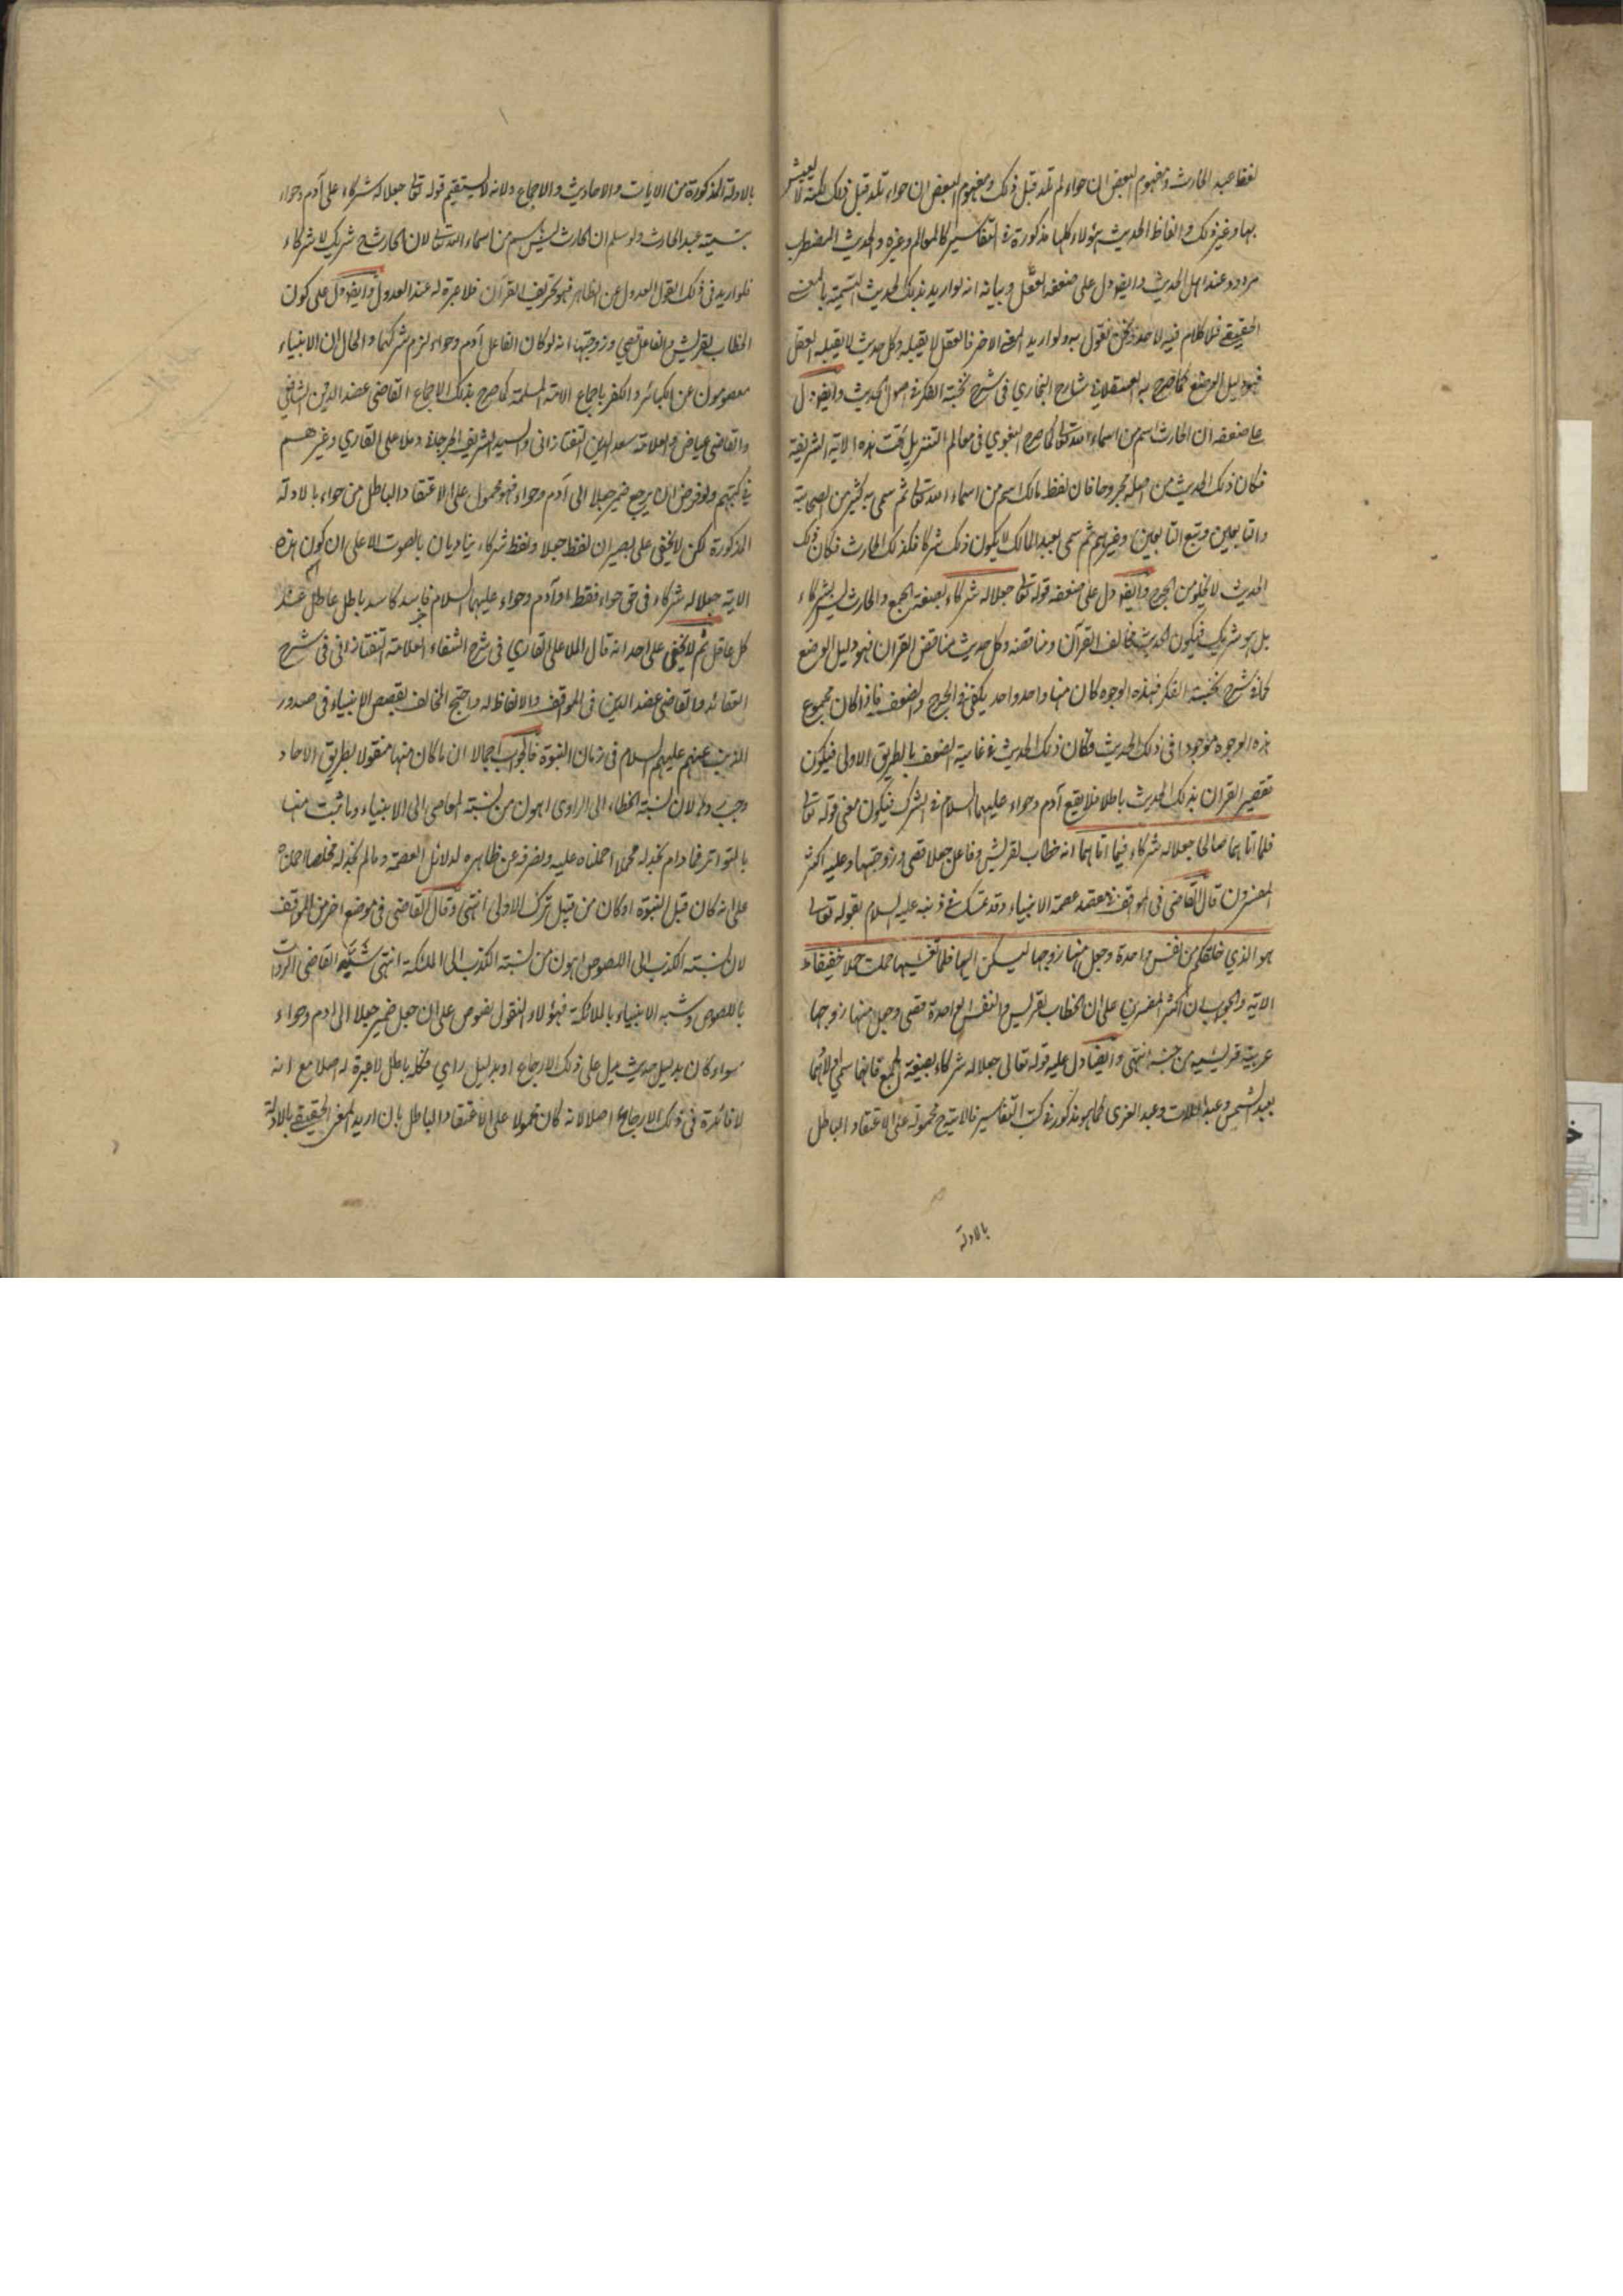 لفظ عبد الحارث ومفهوم البعض ان حواء لم تلد قبل ذلك ومفهوم البعض ان حواء تلد قبل ذلك لكنه لا يعيش
بها وغير ذلك والفاظ الحديث هؤلاء كلها مذكورة في التفاسير كالمعالم وغيره والحديث المضطرب
مردود عند اهل الحديث وايضا دل على ضعفه العقل وبيانه انه لو اريد بذلك الحديث التسمية بالمعنى
الحقيقي فلا كلام فيه لاحد ونحن نقول به ولو اريد المعنى الاخر فالعقل لا يقبله وكل حديث لا يقبله العقل
فهو دليل الوضع كما صرح به العسقلاني شارح البخاري في شرح نخبة الفكر في اصول الحديث وايضا دل
على ضعفه ان الحارث اسم من اسماء الله تعالى كما صرح البغوي في معالم التنزيل تحت هذه الاية الشريفة
فكان ذلك الحديث من اصله مجروحا فان لفظ مالك اسم من اسماء الله تعالى ثم سمي به كثير من الصحابة
والتابعين وتبع التابعين وغيرهم ثم سمي بعبد المالك لا يكون ذلك شركا فكذلك الحارث فكان ذلك
الحديث لا يخلو من الجرح وايضا دل على ضعفه قوله تعالى جعلا له شركاء بصيغة الجمع والحارث ليس بشركاء
بل هو شريك فيكون الحديث مخالف القرآن ومناقضه وكل حديث مناقض القران فهو دليل الوضع
كما في شرح نخبة الفكر فهذه الوجوه كان منها واحد واحد يكفي في الجرح والضعف فاذا كان مجموع
هذه الوجوه موجودا في ذلك الحديث فكان ذلك الحديث في غاية الضعف بالطريق الاولى فيكون
تفسير القران بذلك الحديث باطلا فلا يقع آدم وحواء عليهما السلام في الشرك فيكون معنى قوله تعالى
فلما اتاهما صالحا جعلا له شركاء فيما اتاهما انه خطاب لقريش وفاعل جعلا قصي وزوجتها وعليه اكثر
المفسرون قال القاضي في المواقف في مقصد عصمة الانبياء وقد تمسك في ذنبه عليه السلام بقوله تعالى
هو الذي خلقكم من نفس واحدة وجعل منها زوجها ليسكن اليها فلما تغشيها حملت حملا خفيفا
الاية والجواب ان اكثر المفسرين على ان الخطاب لقريش والنفس الواحدة قصي وجعل منها زوجها
عربية قرشية من جنسه انتهى وايضا دل عليه قوله تعالى جعلا له شركاء بصيغة الجمع فانهما سمي اولادهما
بعبد الشمس وعبد اللات وعبد العزى كما هو مذكور في كتب التفاسير فالاية ح محمولة على الاعتقاد الباطل
بالادلة
بالادلة المذكورة من الايات والاحاديث والاجماع ولانه لا يستقيم قوله تعالى جعلا له شركاء على آدم وحواء
بتسمية عبد الحارث ولو سلم ان الحارث ليس اسم من اسماء الله تعالى لان الحارث ح شريك لا شركاء
فلو اريد في ذلك القول العدول عن الظاهر فهو تحريف القرآن فلا عبرة له عند العدول وايضا دل على كون
الخطاب لقريش والفاعل قصي وزوجتها انه لو كان الفاعل آدم وحواء لزم شركهما والحال ان الانبياء
معصومون عن الكبائر والكفر باجماع الامة المسلمة كما صرح بذلك الاجماع القاضي عضد الدين الشافعي
والقاضي عياض والعلامة سعد الدين التفتازاني والسيد الشريف الجرجاني وملا علي القاري وغيرهم
في كتبهم ولو فرض ان يرجع ضمير جعلا الى آدم وحواء فهو محمول على الاعتقاد الباطل من حواء بالادلة
المذكورة لكن لا يخفى على البصير ان لفظ جعلا ولفظ شركاء يناديان بالصوت الاعلى ان كون هذه
الاية جعلا له شركاء في حق حواء فقط او آدم وحواء عليهما السلام فاسد كاسد باطل عاطل عند
كل عاقل ثم لا يخفى على احد انه قال الملا علي القاري في شرح الشفاء والعلامة التفتازاني في شرح
العقائد والقاضي عضد الدين في المواقف والالفاظ له واحتج المخالف بقصص الانبياء في صدور
الذنب عنهم عليهم السلام في زمان النبوة فالجواب اجمالا ان ما كان منها منقولا بطريق الاحاد
وجب ردها لان نسبة الخطاء الى الراوي اهون من نسبة المعاصي الى الانبياء وما ثبت منها
بالتواتر فما دام نجد له محملا حملناه عليه ونصرفه عن ظاهره لدلائل العصمة وما لم نجد له مخلصا حملناه
على انه كان قبل النبوة او كان من قبيل ترك الاولى انتهى وقال القاضي في موضع اخر من المواقف
لان نسبة الكذب الى اللصوص اهون من نسبة الكذب الى الملئكة انتهى شبه القاضي الرواة
باللصوص وشبه الانبياء بالملائكة فهؤلاء النقول نصوص على ان جعل ضمير جعلا الى ادم وحواء
سواء كان بدليل حديث ميل على ذلك الارجاع او بدليل راي فكله باطل لا عبرة له اصلا مع انه
لا فائدة في ذلك الارجاع اصلا لانه كان محمولا على الاعتقاد الباطل بان اريد المعنى الحقيقي بالادلة